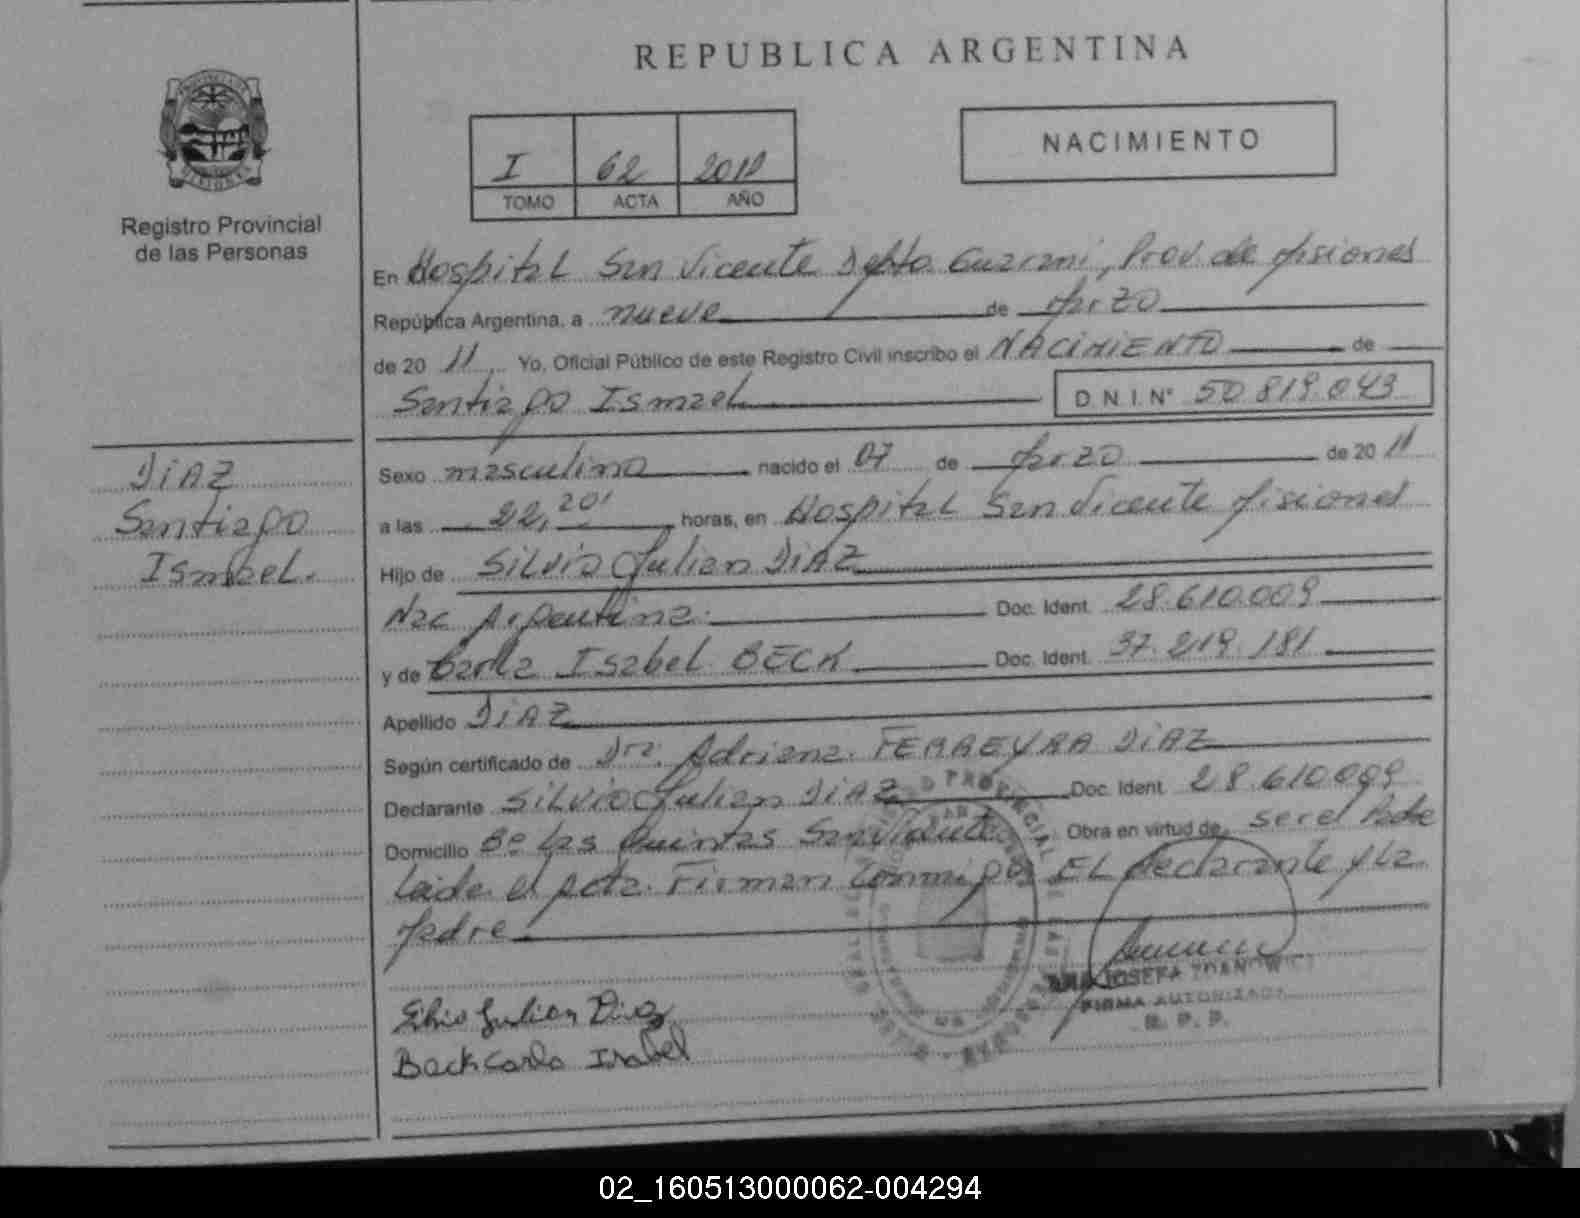 REPUBLICA ARGENTINA
NACIMIENTO
I 62 2011
TOMO ACTA AÑO
Registro Provincial
de las Personas
En Hospital San Vicente Depto Guarani, Prov. de Misiones
República Argentina, a nueve de Marzo
de 20 11 Yo, Oficial Público de este Registro Civil inscribo el NACIMIENTO de
Santiago Ismael D.N.I. N° 50.819.043
DIAZ
Santiago
Ismael.
Sexo masculino nacido el 07 de Marzo de 20 11
a las 22,20' horas, en Hospital San Vicente Misiones
Hijo de Silvio Julian DIAZ
Nac Argentina. Doc. Ident. 28.610.009
y de Carla Isabel BECK Doc. Ident. 37.219.181
Apellido DIAZ
Según certificado de Dra. Adriana FERREYRA DIAZ
Declarante Silvio Julian DIAZ Doc. Ident. 28.610.009
Domicilio B° Las Quintas San Vicente Obra en virtud de ser el Padre
Leida el Acta. Firman Conmigo EL declarante y La
Madre
Silvio Julian Diaz
Beck Carla Isabel
JOSEFA
FIRMA AUTORIZADA
R. P. P.
02_160513000062-004294